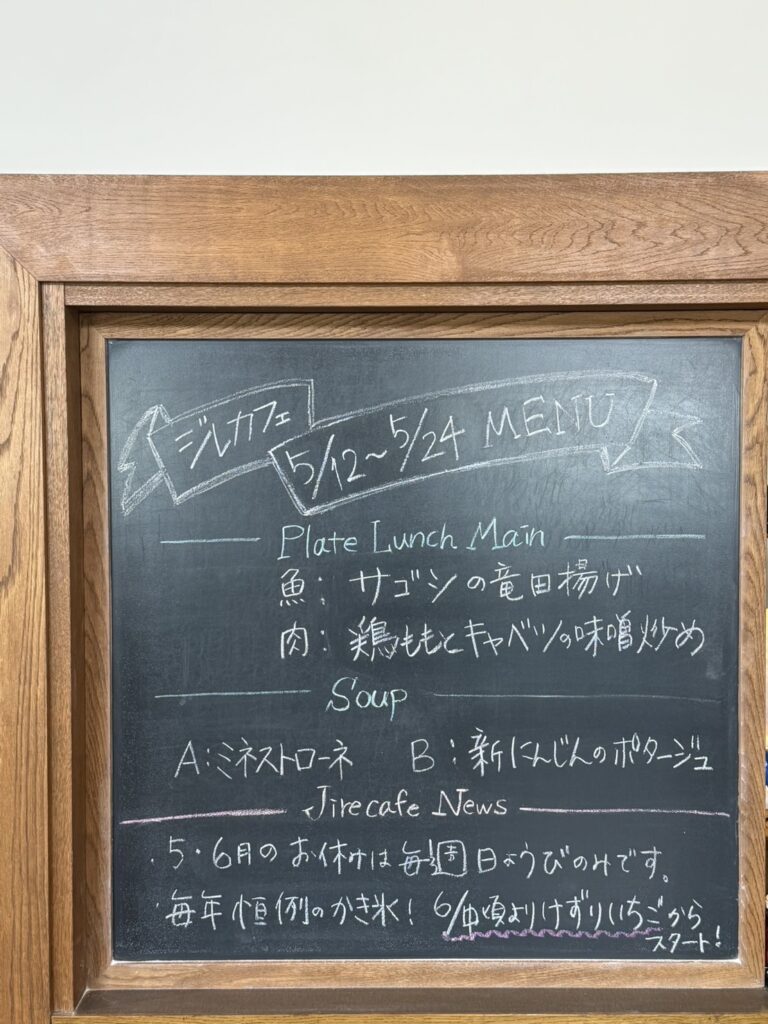 ジルカフェ 5/12～5/24 MENU
Plate Lunch Main
魚：サゴシの竜田揚げ
肉：鶏ももとキャベツの味噌炒め
Soup
A：ミネストローネ B：新にんじんのポタージュ
Jirecafe News
・5・6月のお休みは毎週日ようびのみです。
・毎年恒例のかき氷！6/中頃よりけずりいちごから
スタート！